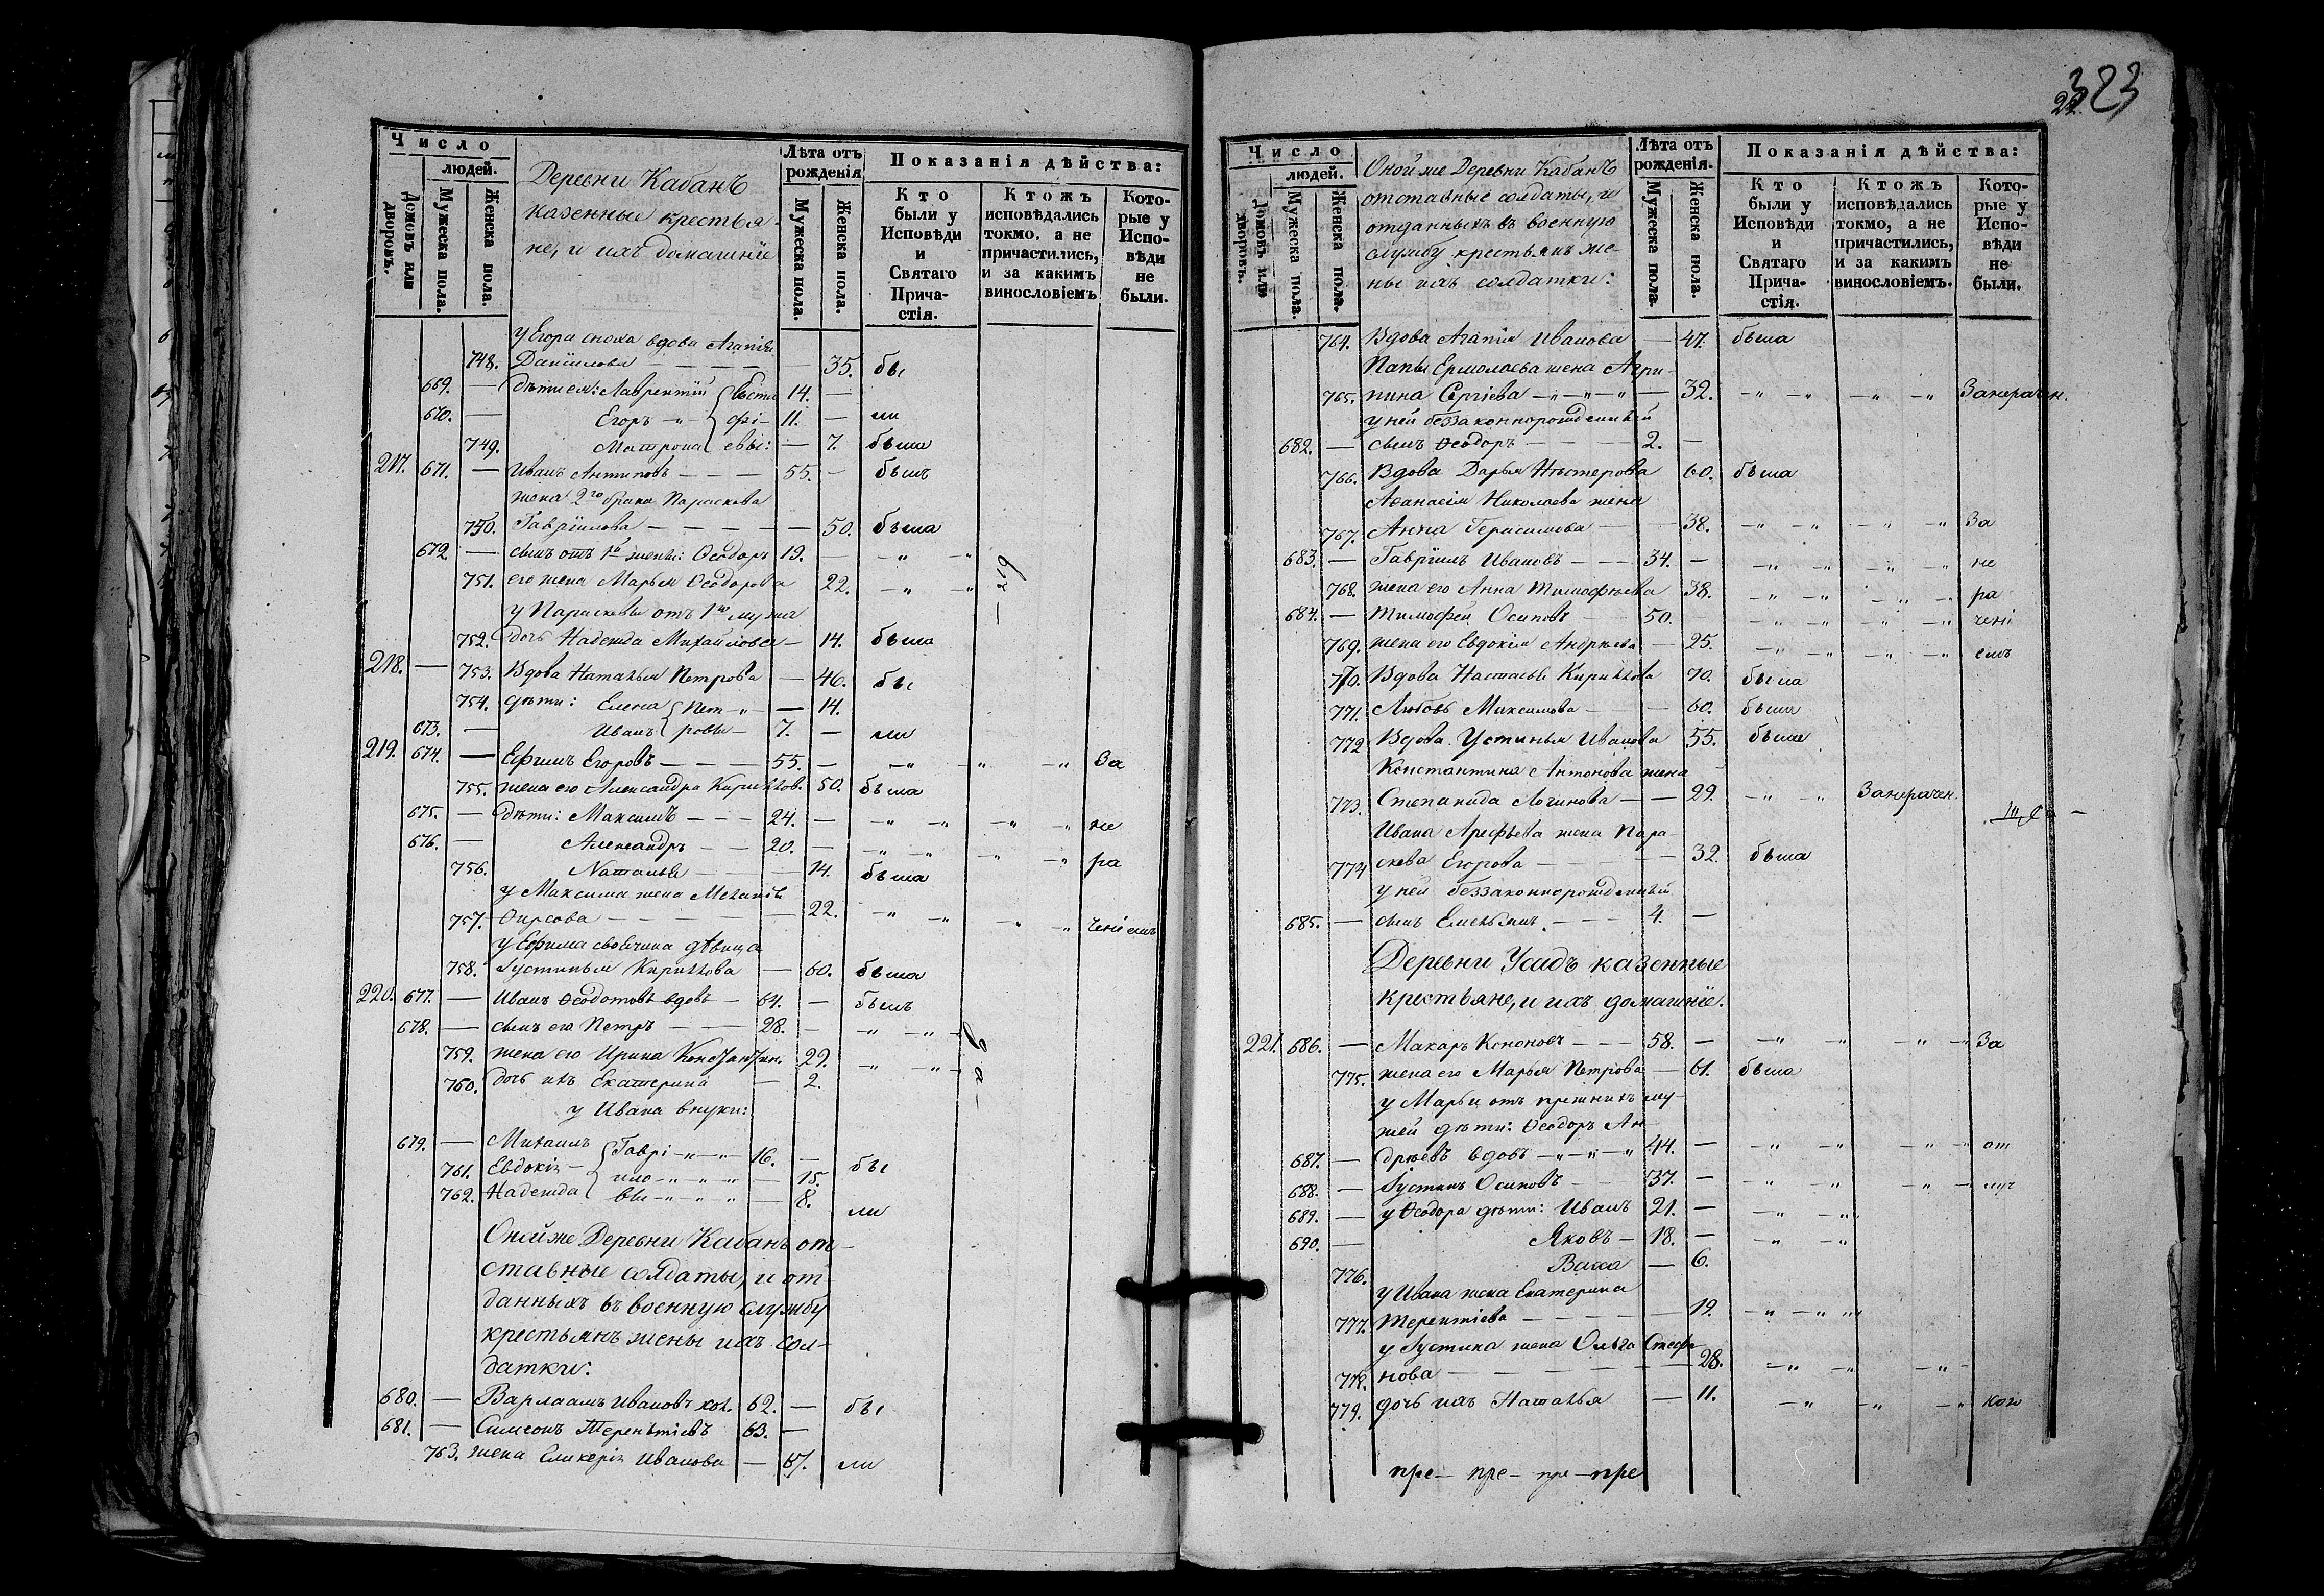 Число
людей.
Домовъ или дворовъ.
Мужеска пола.
Женска пола.
Деревни Кабанъ
казенные крестья-
не, и ихъ домашнїе
Лѣта отъ рожденія
Мужеска пола.
Женска пола.
Показанія дѣйства:
Кто были у Исповѣди и Святаго Прича-стія.
Ктожъ исповѣдались токмо, а не причастились, и за какимъ винословіемъ
Кото-рые у Испо-вѣди не были.
у Егора сноха вдова Агапія
748. Данїилова — — — — 35. бы
669. — дѣти ея: Лаврентїй 14. —
670. — Егоръ 11. — ли
749. Матрона — 7. была
217. 671. — Иванъ Антиповъ — — — 55. — былъ
жена 2го брака Параскева
750. Гаврїилова — — — — 50. была
672. — сынъ отъ 1й жены: Ѳеодоръ 19. — -„ -„
751. его жена Марья Ѳеодорова 22. -„ -„
у Параскевы отъ 1го мужа
752. дочь Надежда Михайлова — 14. была
218. — 753. Вдова Наталья Петрова — 46. бы
754. дѣти: Елена Пет — 14.
673. — Иванъ ровы — 7. — ли
219. 674. — Ефимъ Егоровъ — — — 55. — -„ -„ -„ За
755. жена его Александра Кирилов. 50. была
675. — дѣти: Максимъ — — — 24. — -„ -„ -„ -„ не
676. — Александръ — — 20. — -„ -„ -„ -„ ра
756. Наталья — — — 14. была
у Максима жена Меланїя
757. Ѳирсова — — — — 22. -„ -„ -„ -„ ченіемъ
у Ефима своячина дѣвица
758. Іустинья Кирилова — 60. была
220. 677. — Иванъ Ѳеодотовъ вдовъ — 64. — былъ
678. — сынъ его Петръ — — — 28. — -„ -„
759. жена его Ирина Константин. 29. -„ -„
760. дочь ихъ Екатерина — 2.
у Ивана внуки:
679. — Михаилъ Гаврі -„ -„ 16. —
761. Евдокія — ило -„ -„ -„ — 15. бы
762. Надежда вы -„ -„ -„ — 8. ли
Онойже Деревни Кабанъ от-
ставные солдаты, и от-
данныхъ въ военную службу
крестьянъ жены ихъ сол-
датки:
680. — Варлаамъ Ивановъ хол. 62. — бы
681. — Симеонъ Терентїевъ 63. —
763. жена Гликерія Иванова — 67. ли
323
Число
людей.
Домовъ или дворовъ.
Мужеска пола.
Женска пола.
Онойже Деревни Кабанъ
отставные солдаты, и
отданныхъ въ военную
службу крестьянъ же-
ны ихъ солдатки:
Лѣта отъ рожденія.
Мужеска пола.
Женска пола.
Показанія дѣйства:
Кто были у Исповѣди и Святаго Прича-стія.
Ктожъ исповѣдались токмо, а не причастились, и за какимъ винословіемъ.
Кото-рые у Испо-вѣди не были.
764. Вдова Агапія Иванова — 47. была
Ермолаева жена Агри-
765. пина Сергїева -„ -„ -„ — 32. -„ -„ -„ -„ Занерачен.
у ней беззаконнорожденный
682. — сынъ Ѳеодоръ — — — 2. —
766. Вдова Дарья Нестерова 60. была
Аѳанасія Николаева жена
767. Анна Герасимова — — 38. -„ -„ -„ -„ За
683. — Гаврїилъ Ивановъ — — 34. — -„ -„ -„ -„ не
768. жена его Анна Тимофѣева 38. -„ -„ -„ -„ ра
684. — Тимофей Осиповъ — 50. -„ -„ -„ -„ чені
769. жена его Евдокія Андреева — 25. -„ -„ -„ -„ емъ
770. Вдова Настасья Кирилова 70. была
771. Любовь Максимова — — 60. была
772 Вдова Устинья Иванова 55. была
Константина Антонова жена
773. Степанида Логинова — — 29. -„ -„ Занерачен.
Ивана Арефьева жена Пара-
774 скева Егорова — — — 32. была
у ней беззаконнорожденный
685. — сынъ Емельянъ — — 4. —
Деревни Усадъ казенные
крестьяне, и ихъ домашнїе.
221. 686. — Макаръ Кононовъ — — 58. — -„ -„ -„ — За
775. жена его Марья Петрова — 61. была
у Марьи отъ прежнихъ му-
жей дѣти: Ѳеодоръ Ан-
687. — дреевъ вдовъ -„ -„ -„ 44. — -„ -„ -„ -„ от
688. — Іустинъ Осиповъ — — 37. — -„ -„ -„ — луч
689. — у Ѳеодора дѣти: Иванъ 21. — -„ -„
690. — Яковъ — 18. — -„ -„
776. Васса — 6.
у Ивана жена Екатерина
777. Терентїева — — — — 19. -„ -„ -„
у Іустина жена Ольга Стефа-
778. нова — — — — 28. -„ -„ -„
779. дочь ихъ Наталья — 11. -„ -„ -„ кою
пре- пре- пре- пре